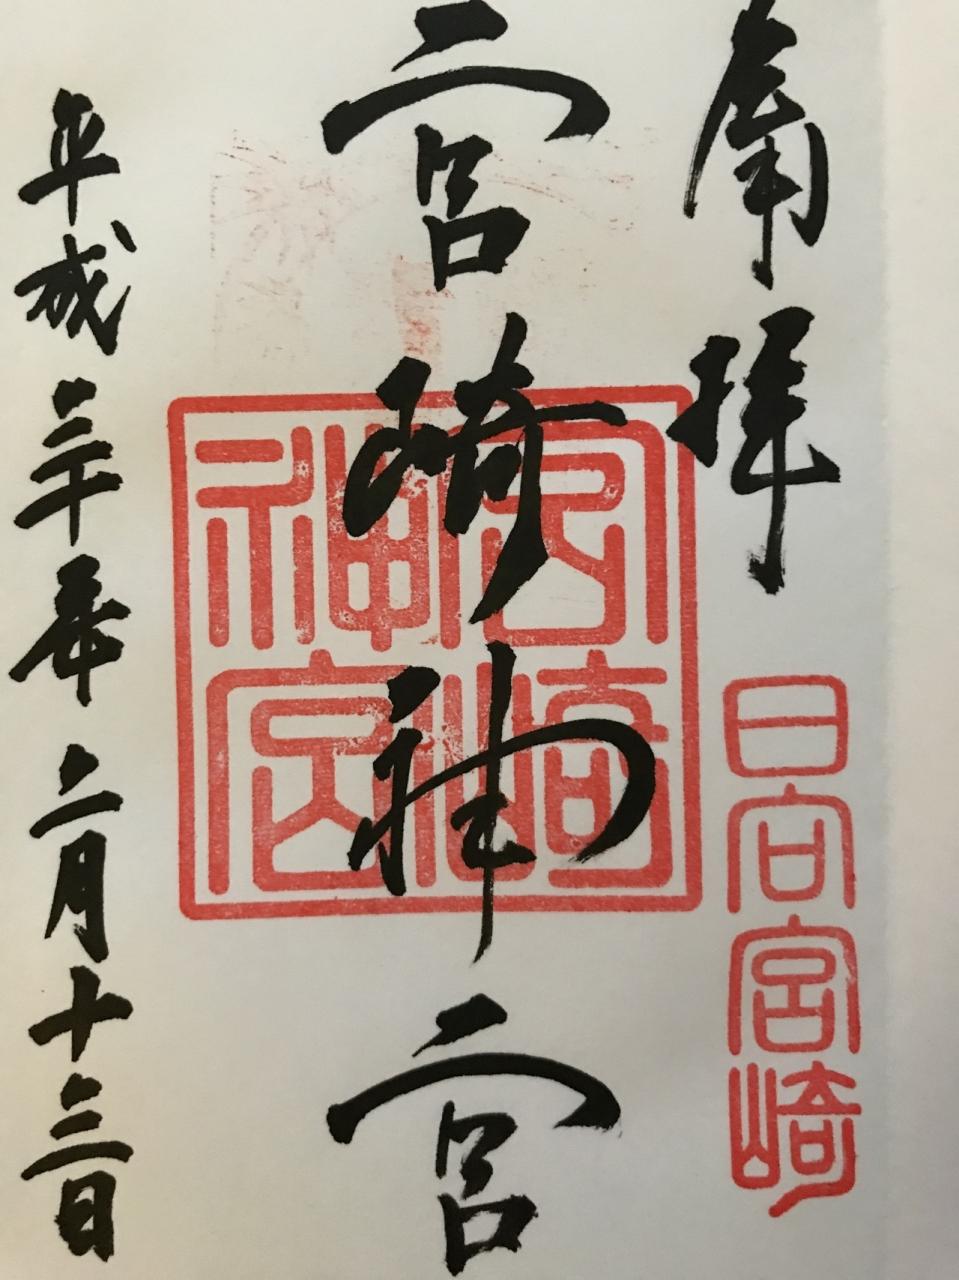 奉拝
日向宮崎
宮崎神宮
宮崎神宮
平成三十年二月十三日